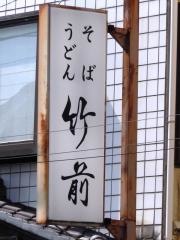 そば
うどん
竹前